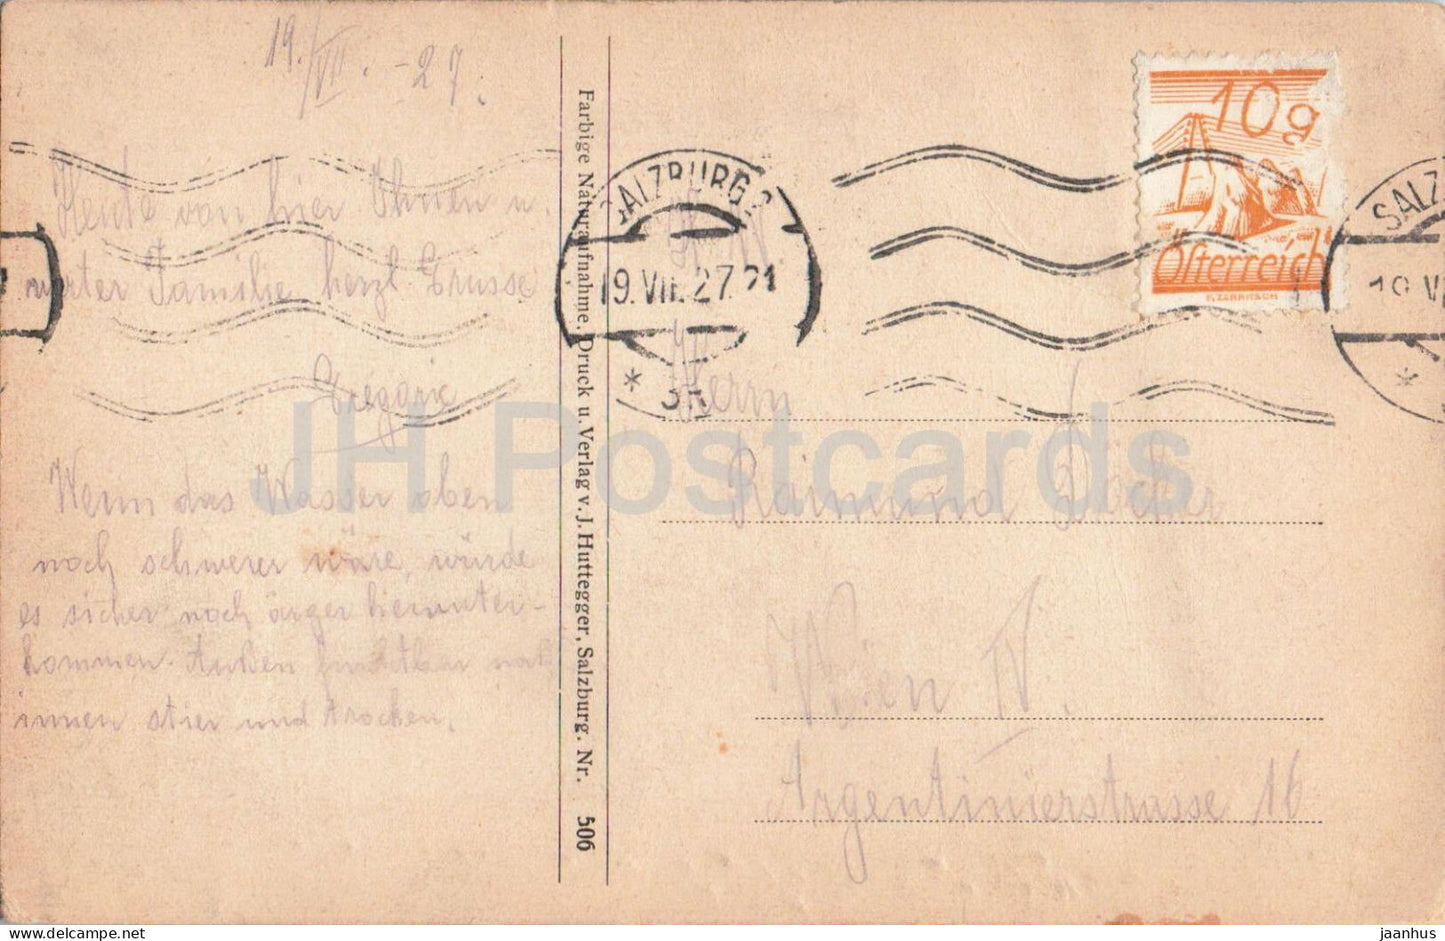 19./VII. -27.
Heute von hier Ihnen u.
werter Familie herzl. Grüsse
Gregoric
Wenn das Wasser oben
noch schwerer wäre, würde
es sicher noch ärger herunter-
kommen. Außen furchtbar naß
innen stier und trocken.
Farbige Naturaufnahme, Druck u. Verlag v. J. Huttegger, Salzburg. Nr. 506
SALZBURG 2
19.VII.27.21
* *
10g
Österreich
SALZ
19.VI
*
Herrn
Raimund
Wien IV.
Argentinierstrasse 16
JH Postcards
jaanhus